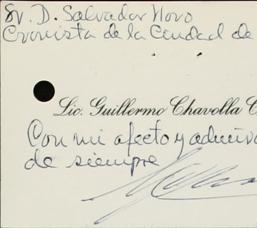 Sr. D. Salvador Novo
Cronista de la Ciudad de
Lic. Guillermo Chavolla C
Con mi afecto y admira
de siempre